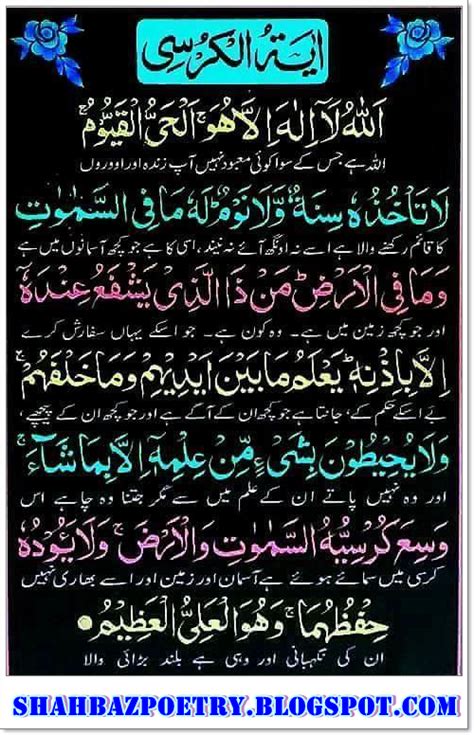 اٰیَۃُ الْکُرْسِی
اَللّٰہُ لَآ اِلٰہَ اِلَّا ھُوَ ۚ اَلْحَیُّ الْقَیُّوْمُ ۚ
اللہ ہے جس کے سوا کوئی معبود نہیں آپ زندہ اور اوروں
لَا تَاْخُذُہٗ سِنَۃٌ وَّلَا نَوْمٌ ؕ لَہٗ مَا فِی السَّمٰوٰتِ
کا قائم رکھنے والا ہے اسے نہ اونگھ آئے نہ نیند، اسی کا ہے جو کچھ آسمانوں میں ہے
وَمَا فِی الْاَرْضِ ؕ مَنْ ذَا الَّذِیْ یَشْفَعُ عِنْدَہٗٓ
اور جو کچھ زمین میں ہے۔ وہ کون ہے۔ جو اسکے یہاں سفارش کرے
اِلَّا بِاِذْنِہٖ ؕ یَعْلَمُ مَا بَیْنَ اَیْدِیْھِمْ وَمَا خَلْفَھُمْ ۚ
بے اسکے حکم کے، جانتا ہے جو کچھ ان کے آگے ہے اور جو کچھ ان کے پیچھے،
وَلَا یُحِیْطُوْنَ بِشَیْءٍ مِّنْ عِلْمِہٖٓ اِلَّا بِمَا شَآءَ ۚ
اور وہ نہیں پاتے ان کے علم میں سے مگر جتنا وہ چاہے اس
وَسِعَ کُرْسِیُّہُ السَّمٰوٰتِ وَالْاَرْضَ ۚ وَلَا یَئُوْدُہٗ
کرسی میں سمائے ہوئے ہے آسمان اور زمین اور اسے بھاری نہیں
حِفْظُھُمَا ۚ وَھُوَ الْعَلِیُّ الْعَظِیْمُ
ان کی نگہبانی اور وہی ہے بلند بڑائی والا
SHAHBAZPOETRY.BLOGSPOT.COM